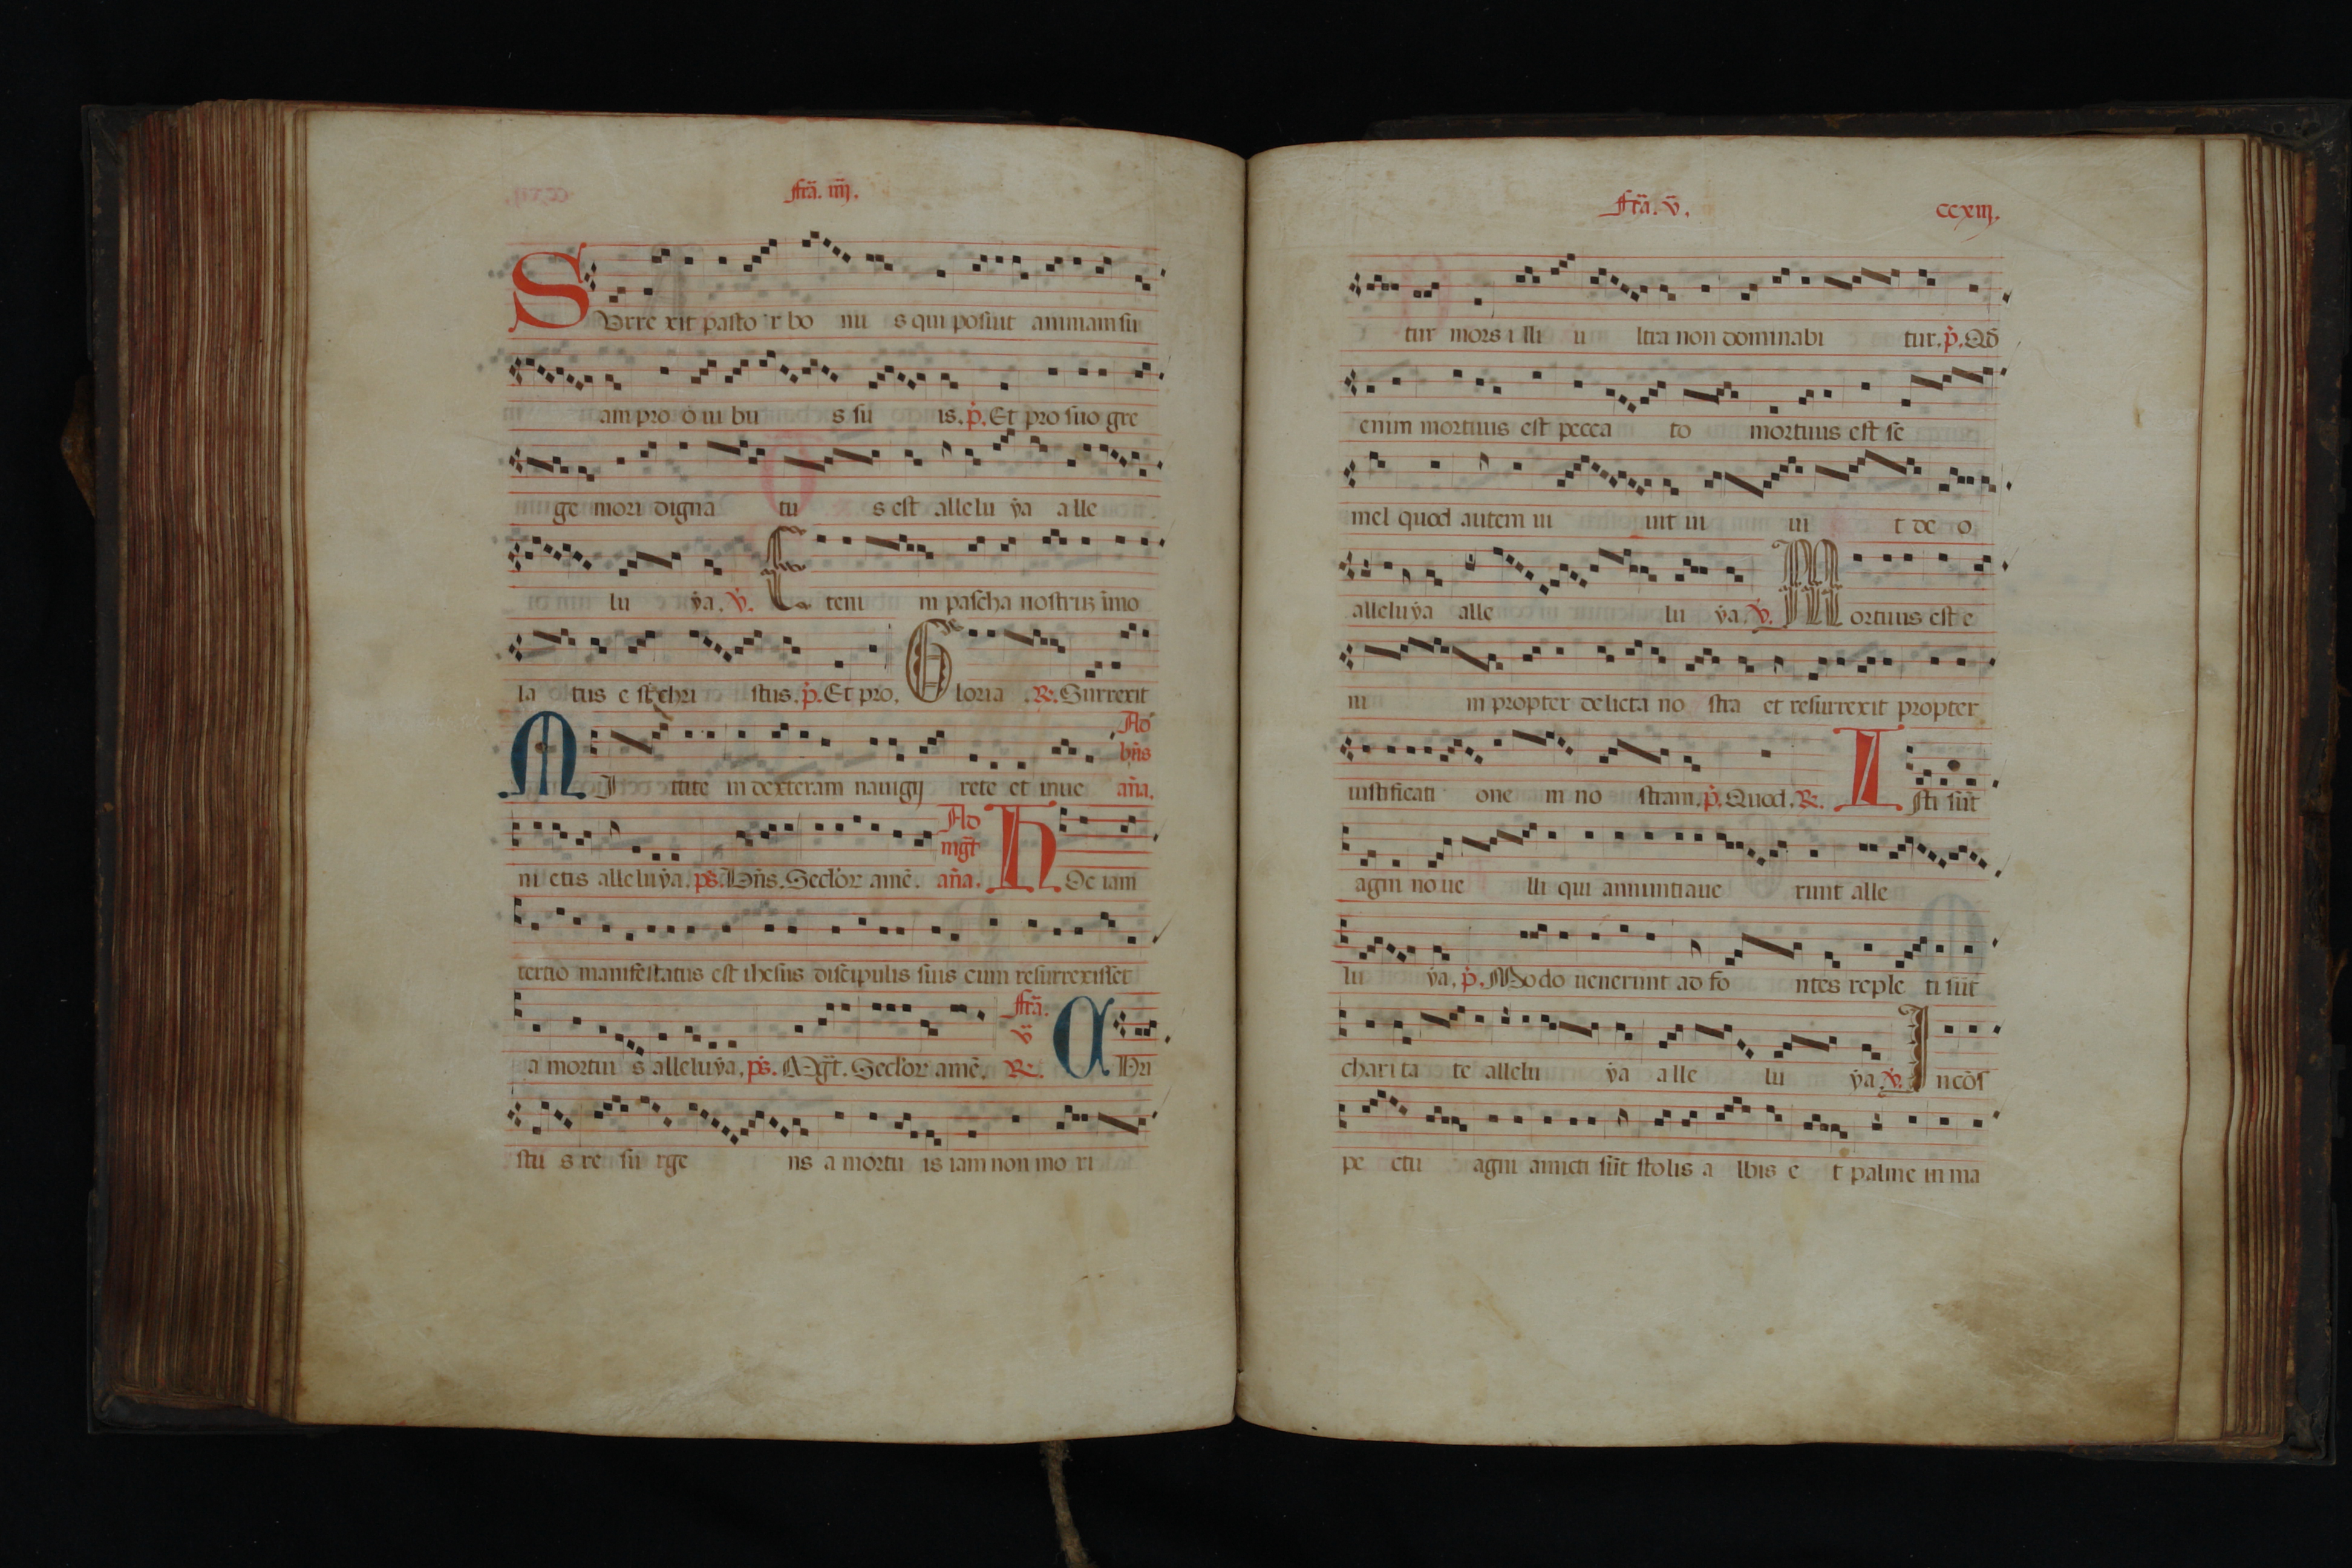 fr̃a. iiij.
SVrre xit pasto r bo nu s qui posuit animam su
am pro o ui bu s su is. p̃. Et pro suo gre
ge mori digna tu s est allelu ẏa alle
lu ẏa. ṽ. Eteni m pascha nostruz imo
la tus e st chri stus. p̃. Et pro. Gloria R̃. Surrexit
MIttite in dexteram nauigij rete et inue Ad bñs añа.
ni etis alleluẏa. ps̃. Bñs. Seclor amẽ. Ad mg̃t añа. hOc iam
tertio manifestatus est ihesus discipulis suis cum resurrexisset
a mortui s alleluẏa. ps̃. Mg̃t. Seclor amẽ. fr̃a. v̄ R̃. CHri
stu s re su rge ns a mortu is iam non mo ri
fr̃a. v̄.
ccxiij.
tur mors i lli u ltra non dominabi tur. p̃. Qđ
enim mortuus est pecca to mortuus est se
mel quod autem ui uit ui ui t de o
alleluẏa alle lu ẏa. ṽ. Mortuus est e
ni m propter delicta no stra et resurrexit propter
iustificati one m no stram. p̃. Quod. R̃. Isti sũt
agni no ue lli qui annuntiaue runt alle
lu ẏa. p̃. Modo uenerunt ad fo ntes reple ti sũt
chari ta te allelu ẏa alle lu ẏa. ṽ. In cõs
pe ctu agni amicti sũt stolis a lbis e t palme in ma